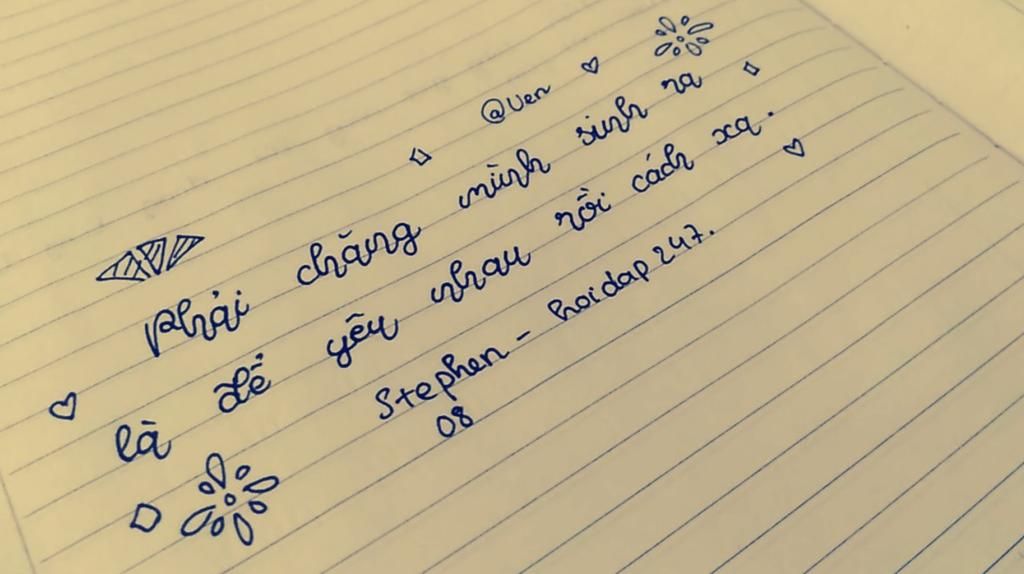 @Uen
Phải chăng mình sinh ra
là để yêu nhau rồi cách xa.
Stephen - hoidap247.
08